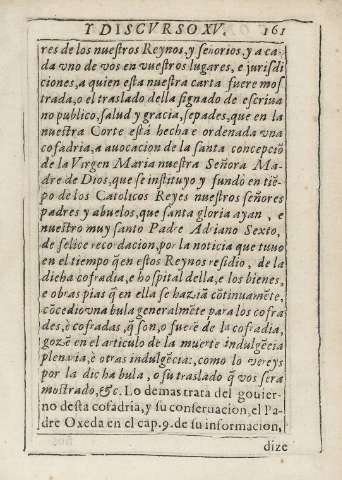 Y DISCVRSO XV. 161
res de los nuestros Reynos, y señorios, y a ca-
da vno de vos en vuestros lugares, e jurisdi
ciones, a quien esta nuestra carta fuere mos
trada, o el traslado della signado de escriua
no publico, salud y gracia, sepades, que en la
nuestra Corte està hecha e ordenada vna
cofadria, a auocacion de la santa concepciõ
de la Virgen Maria nuestra Señora Ma
dre de Dios, que se instituyo y fundò en tiẽ
po de los Catolicos Reyes nuestros señores
padres y abuelos, que santa gloria ayan, e
nuestro muy santo Padre Adriano Sexto,
de felice recordacion, por la noticia que tuuo
en el tiempo q̃ en estos Reynos residio, de la
dicha cofradia, e hospital della, e los bienes,
e obras pias q̃ en ella se hazia cõtinuamẽte,
cõcedio vna bula generalmẽte para los cofra
des, è cofradas, q̃ son, o fuerẽ de la cofradia,
gozẽ en el articulo de la muerte indulgẽcia
plenaria, è otras indulgẽcias, como lo vereys
por la dicha bula, o su traslado q̃ vos sera
mostrado, &c. Lo demas trata del gouier-
no desta cofadria, y su conseruacion, el Pa-
dre Oxeda en el cap. 9. de su informacion,
dize